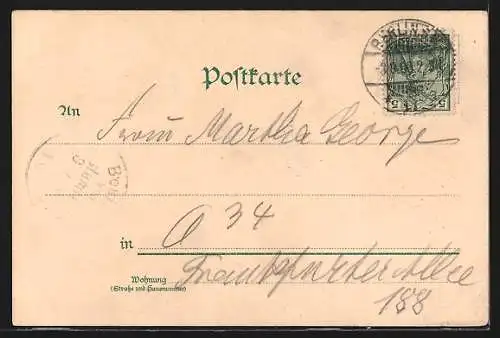 BERLIN
5 5
Postkarte
An Frau Martha George
in O 34
Wohnung
(Straße und Hausnummer)
Frankfurter Allee
188